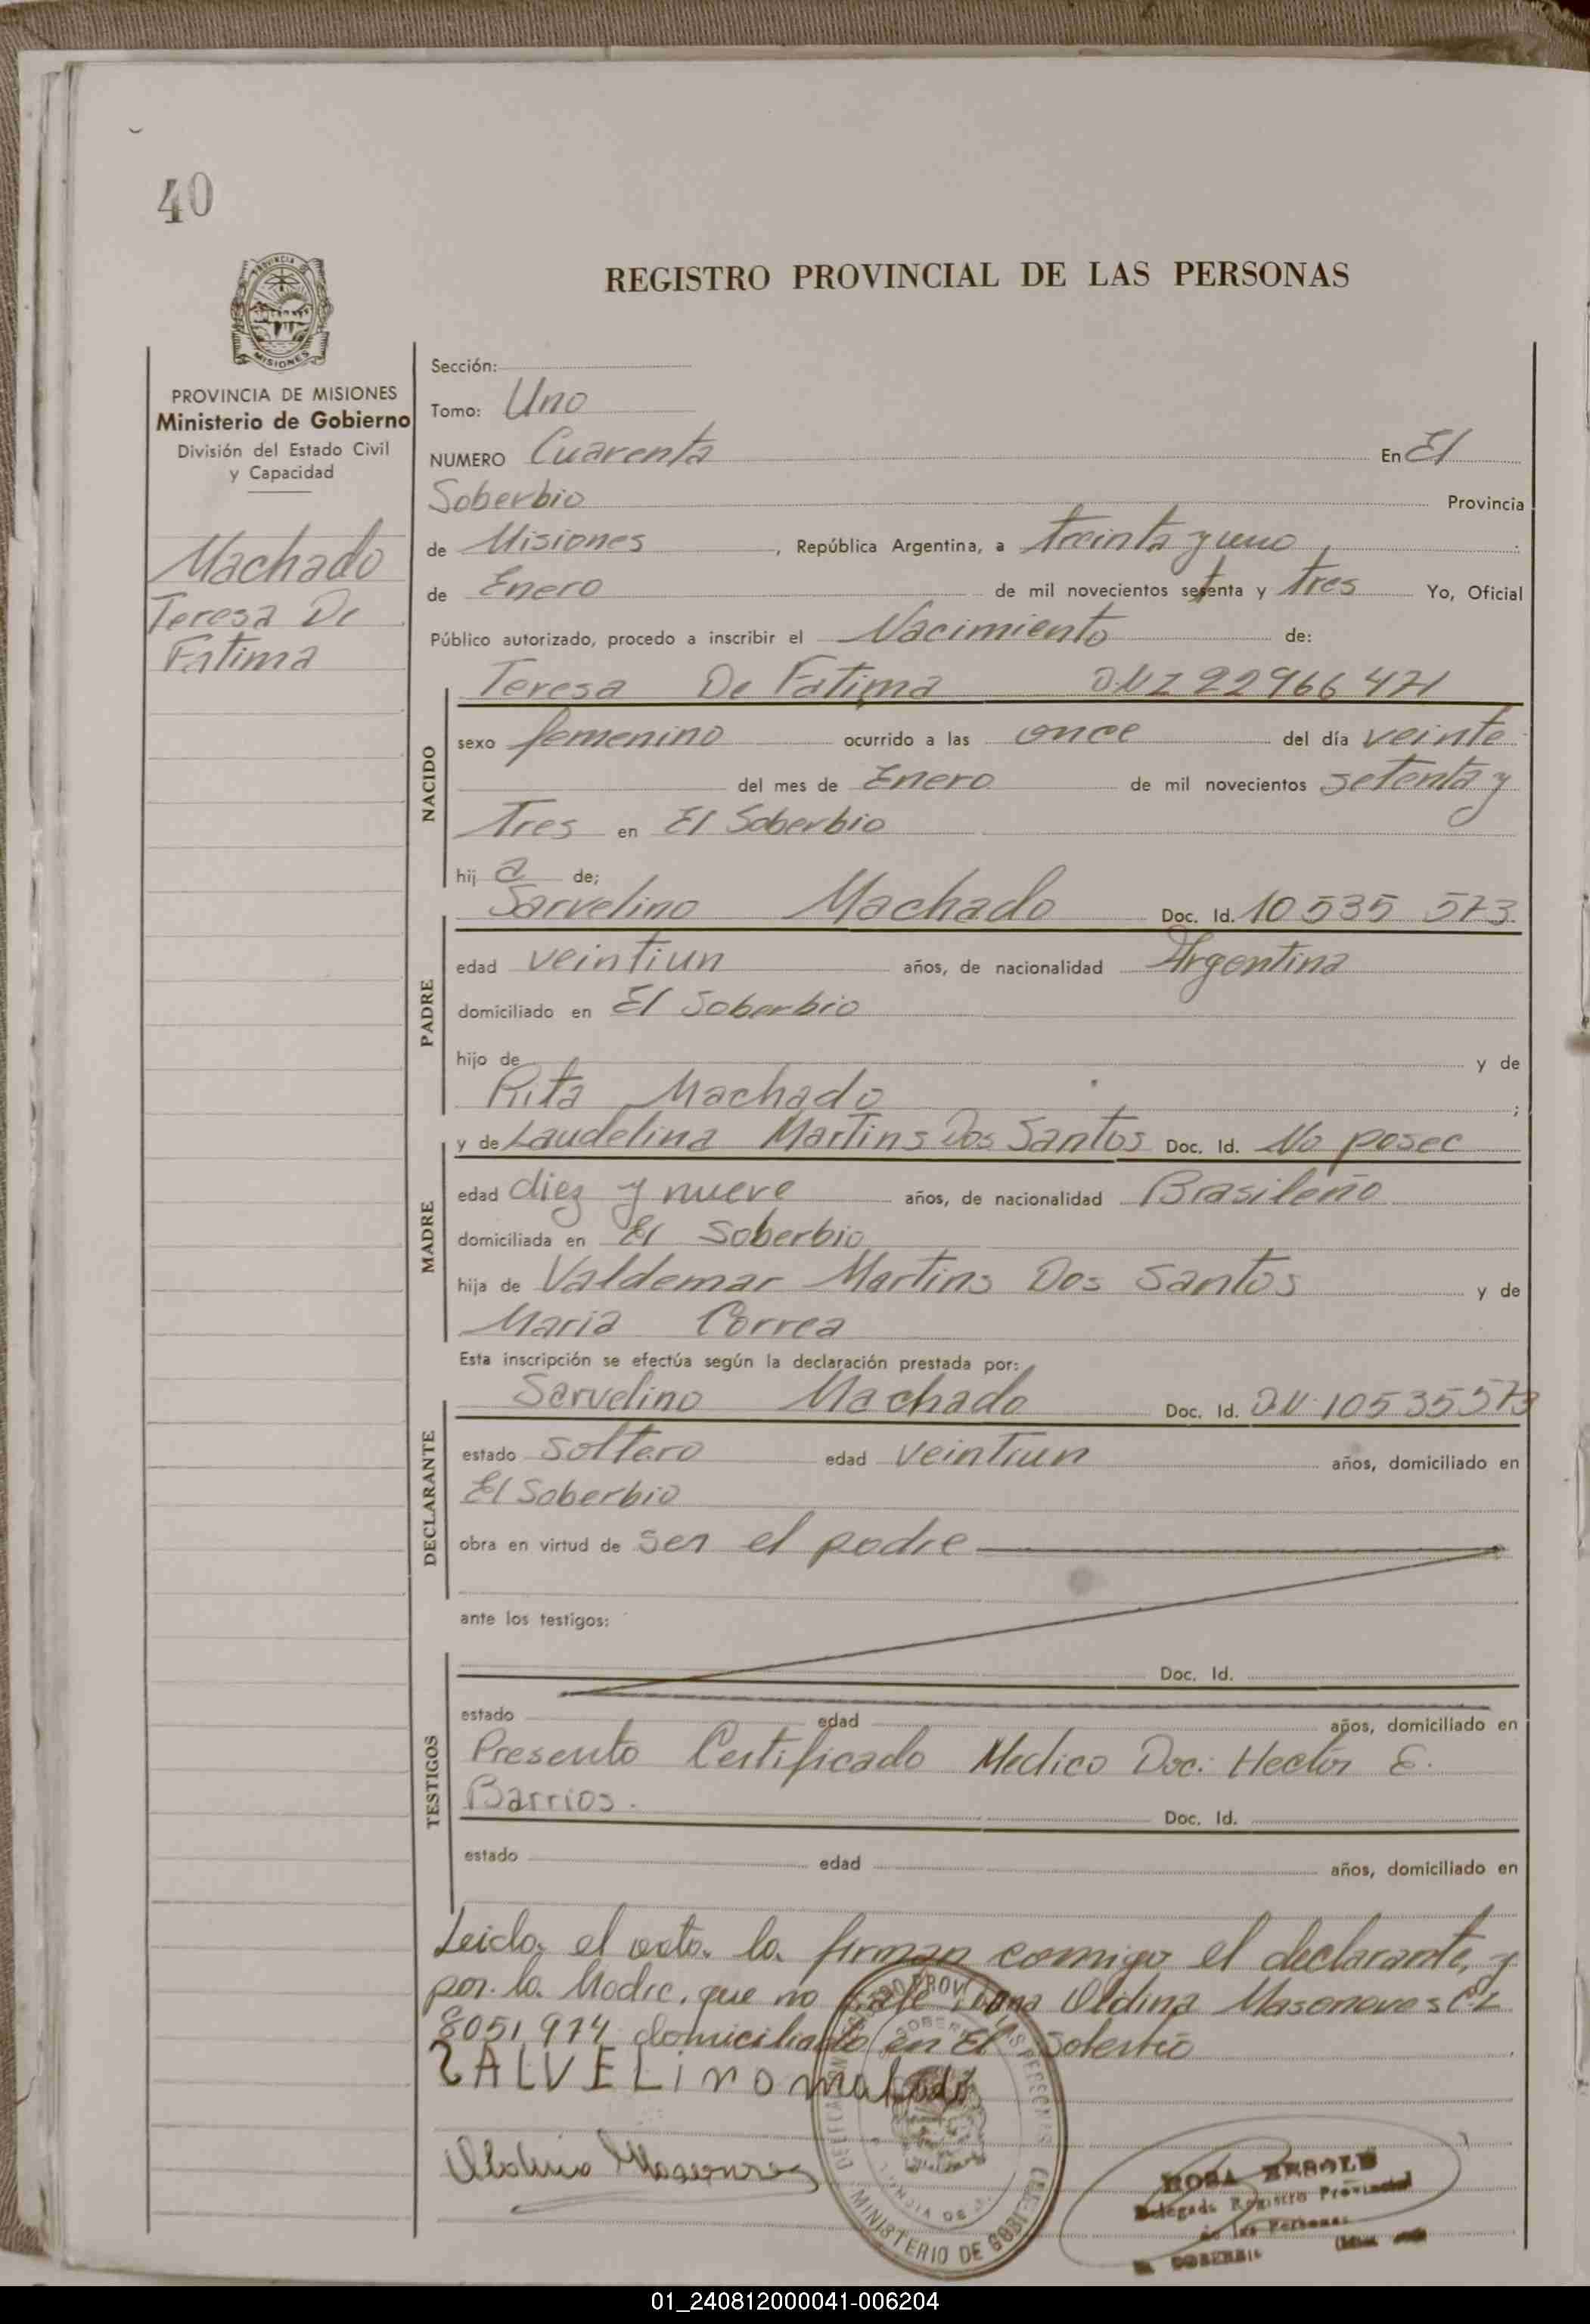 40
REGISTRO PROVINCIAL DE LAS PERSONAS
PROVINCIA DE
MISIONES
PROVINCIA DE MISIONES
Ministerio de Gobierno
División del Estado Civil
y Capacidad
Machado
Teresa De
Fatima
Sección:
Tomo: Uno
NUMERO Cuarenta En El
Soberbio Provincia
de Misiones, República Argentina, a treinta y uno
de Enero de mil novecientos setenta y tres Yo, Oficial
Público autorizado, procedo a inscribir el Nacimiento de:
NACIDO
Teresa De Fatima 22966471
sexo femenino ocurrido a las once del día veinte
del mes de Enero de mil novecientos setenta y
Tres en El Soberbio
hij a de;
PADRE
Sarvelino Machado Doc. Id. 10535 573
edad veintiun años, de nacionalidad Argentina
domiciliado en El Soberbio
hijo de y de
Rita Machado ;
MADRE
y de Laudelina Martins Dos Santos Doc. Id. No posec
edad diez y nueve años, de nacionalidad Brasileño
domiciliada en El Soberbio
hija de Valdemar Martins Dos Santos y de
Maria Correa
Esta inscripción se efectúa según la declaración prestada por:
DECLARANTE
Servelino Machado Doc. Id. 10535573
estado soltero edad veintiun años, domiciliado en
El Soberbio
obra en virtud de ser el padre
ante los testigos:
TESTIGOS
Doc. Id.
estado edad años, domiciliado en
Presento Certificado Medico Doc: Hector E.
Barrios.
Doc. Id.
estado edad años, domiciliado en
Leido el acta la firman comigo el declarante, y
por la Madre, que no Oldina
8051914 domiciliado en El Soberbio
SALVELino
MINISTERIO DE GOBIERNO
Delegada Registro Provincial
de las Personas
01_240812000041-006204